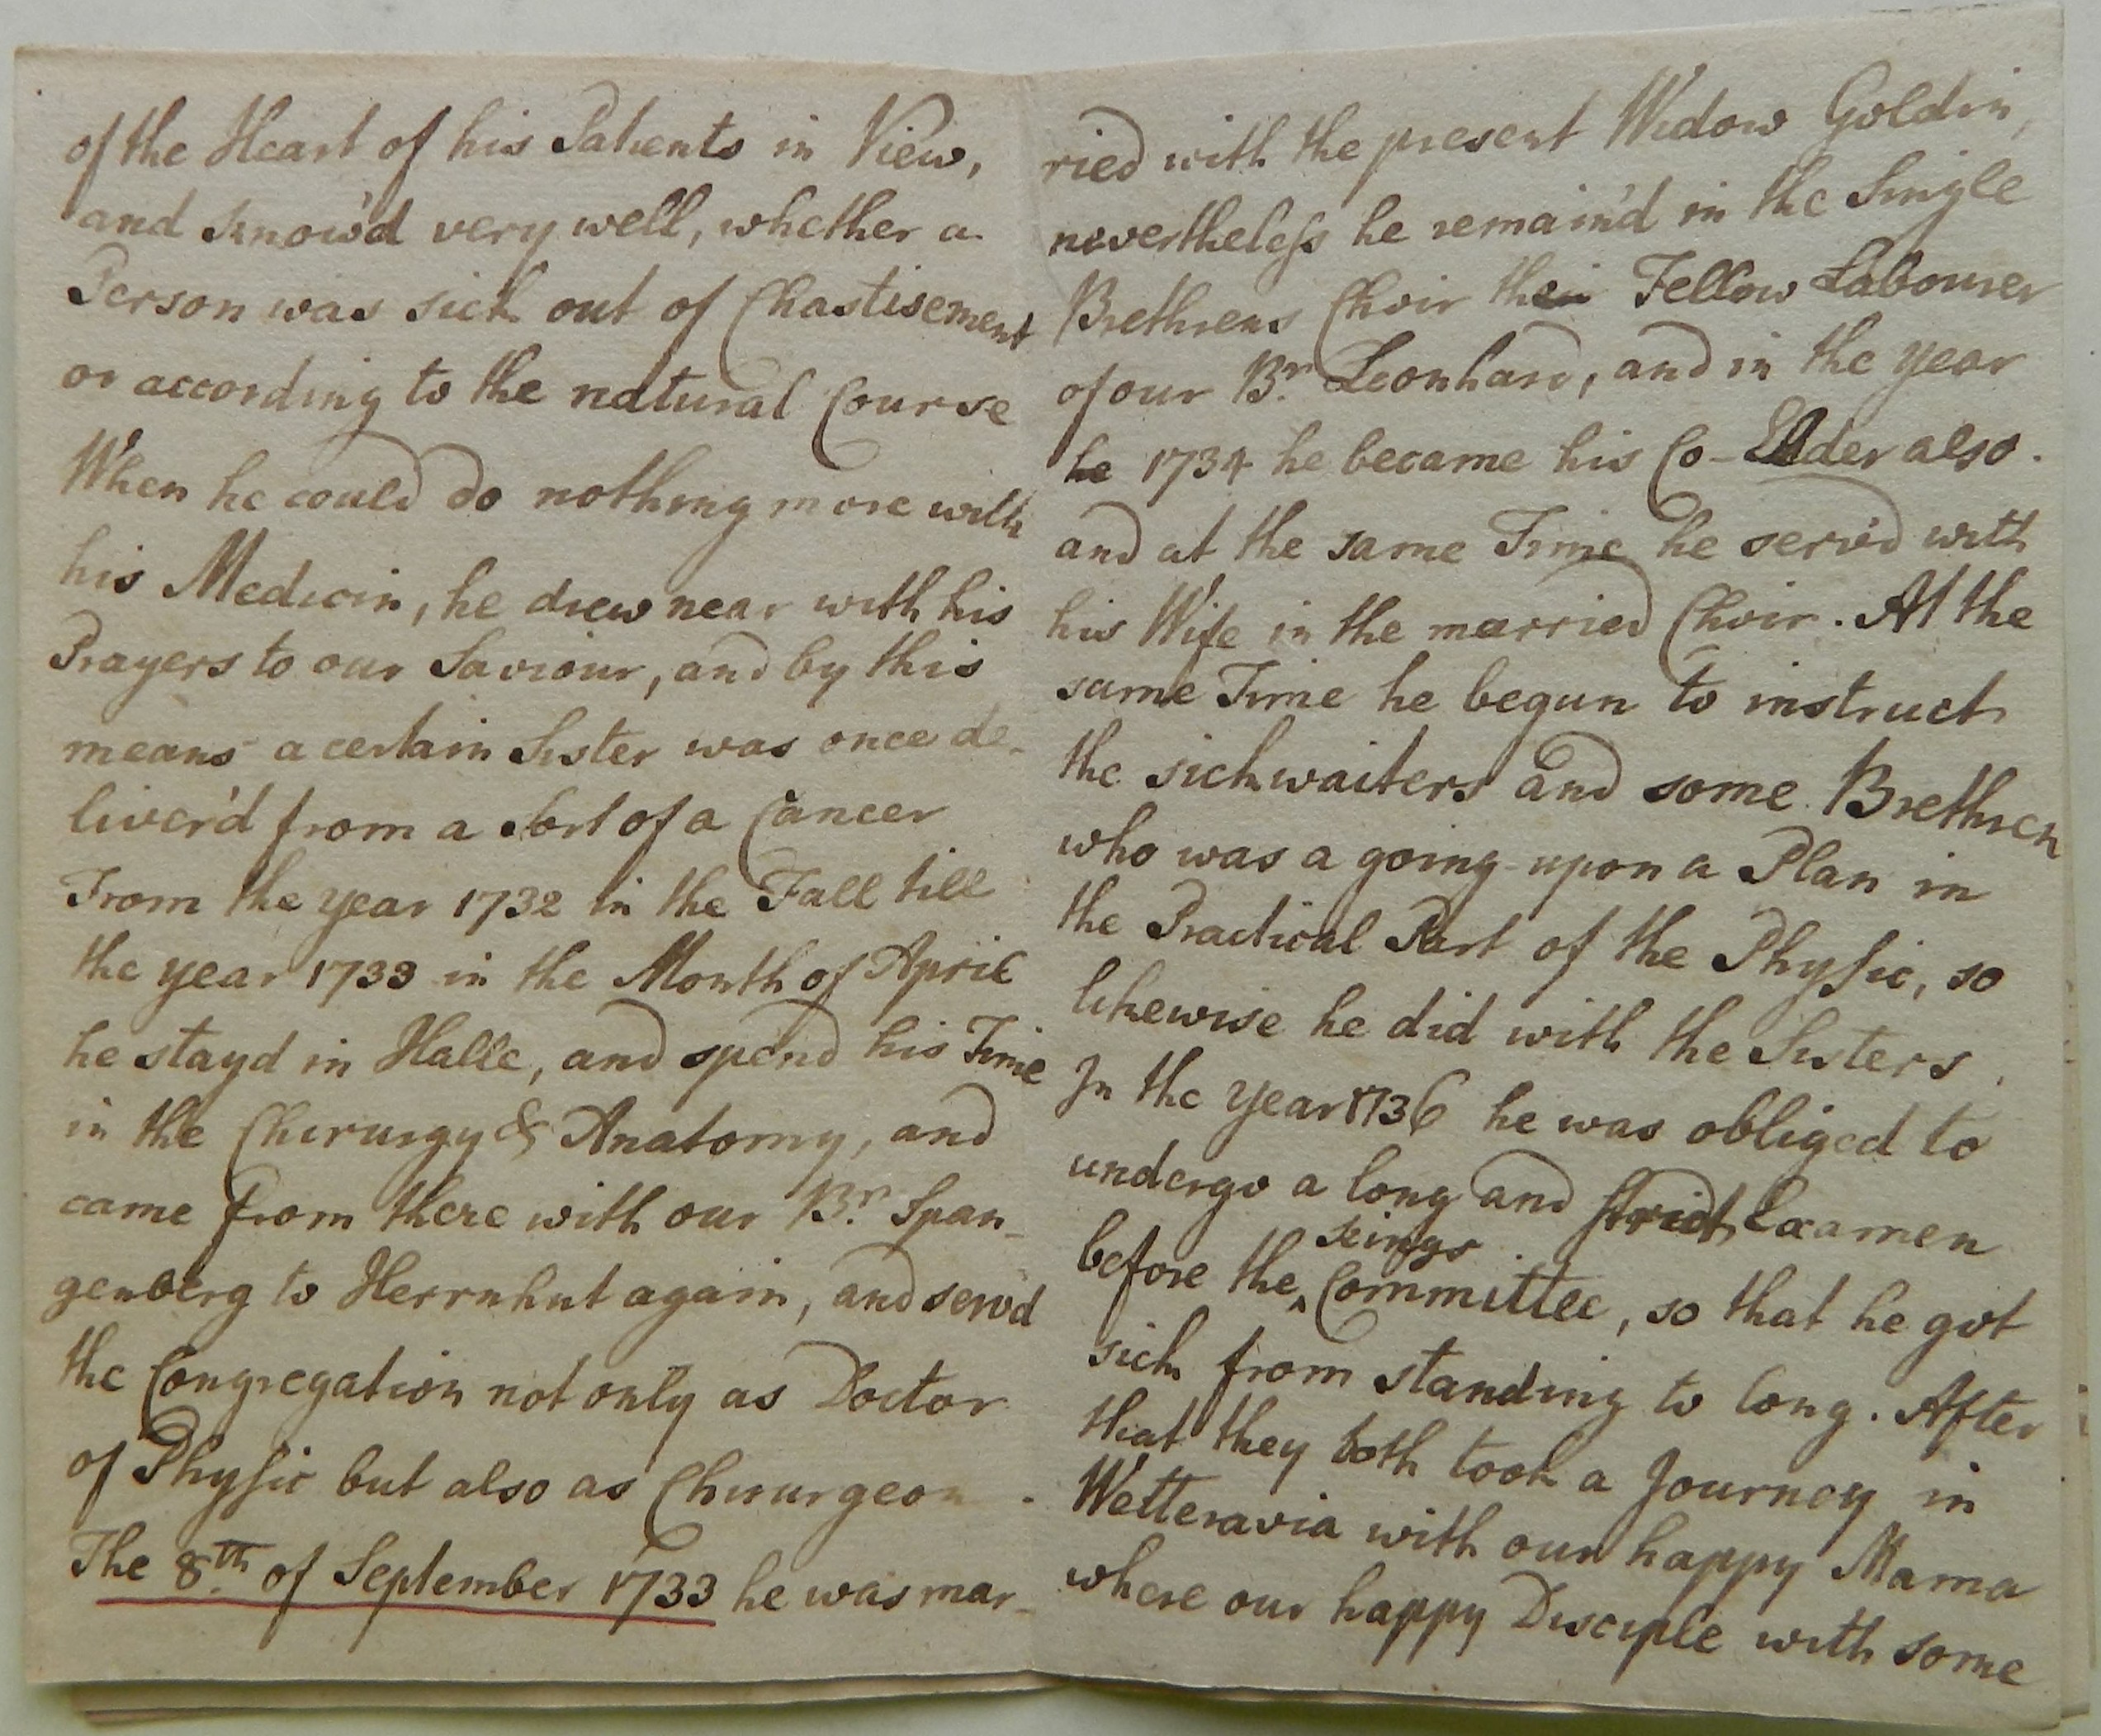 of the Heart of his Patients in View,
and know'd very well, whether a
Person was sick out of Chastisement
or according to the natural Course
When he could do nothing more with
his Medicin, he drew near with his
Prayers to our Saviour, and by this
means a certain Sister was once de-
liver'd from a Sort of a Cancer
From the year 1732 in the Fall till
the year 1733 in the Month of April
he stayd in Halle, and spend his Time
in the Chirurgy & Anatomy, and
came from there with our Br. Span-
genberg to Herrnhut again, and serv'd
the Congregation not only as Doctor
of Physic but also as Chirurgeon.
The 8th of September 1733 he was mar-
ried with the present Widow Goldin,
nevertheless he remain'd in the Single
Brethrens Choir their Fellow Labourer
of our Br. Leonhard, and in the year
he 1734 he became his Co-Elder also.
and at the same Time he serv'd with
his Wife in the married Choir. At the
same Time he begun to instruct
the sickwaiters and some Brethren
who was a going upon a Plan in
the Practical Part of the Physic, so
likewise he did with the Sisters.
In the year 1736 he was obliged to
undergo a long and strict Examen
before the kings Committee, so that he got
sick from standing to long. After
that they both took a Journey in
Wetteravia with our happy Mama
where our happy Disciple with some